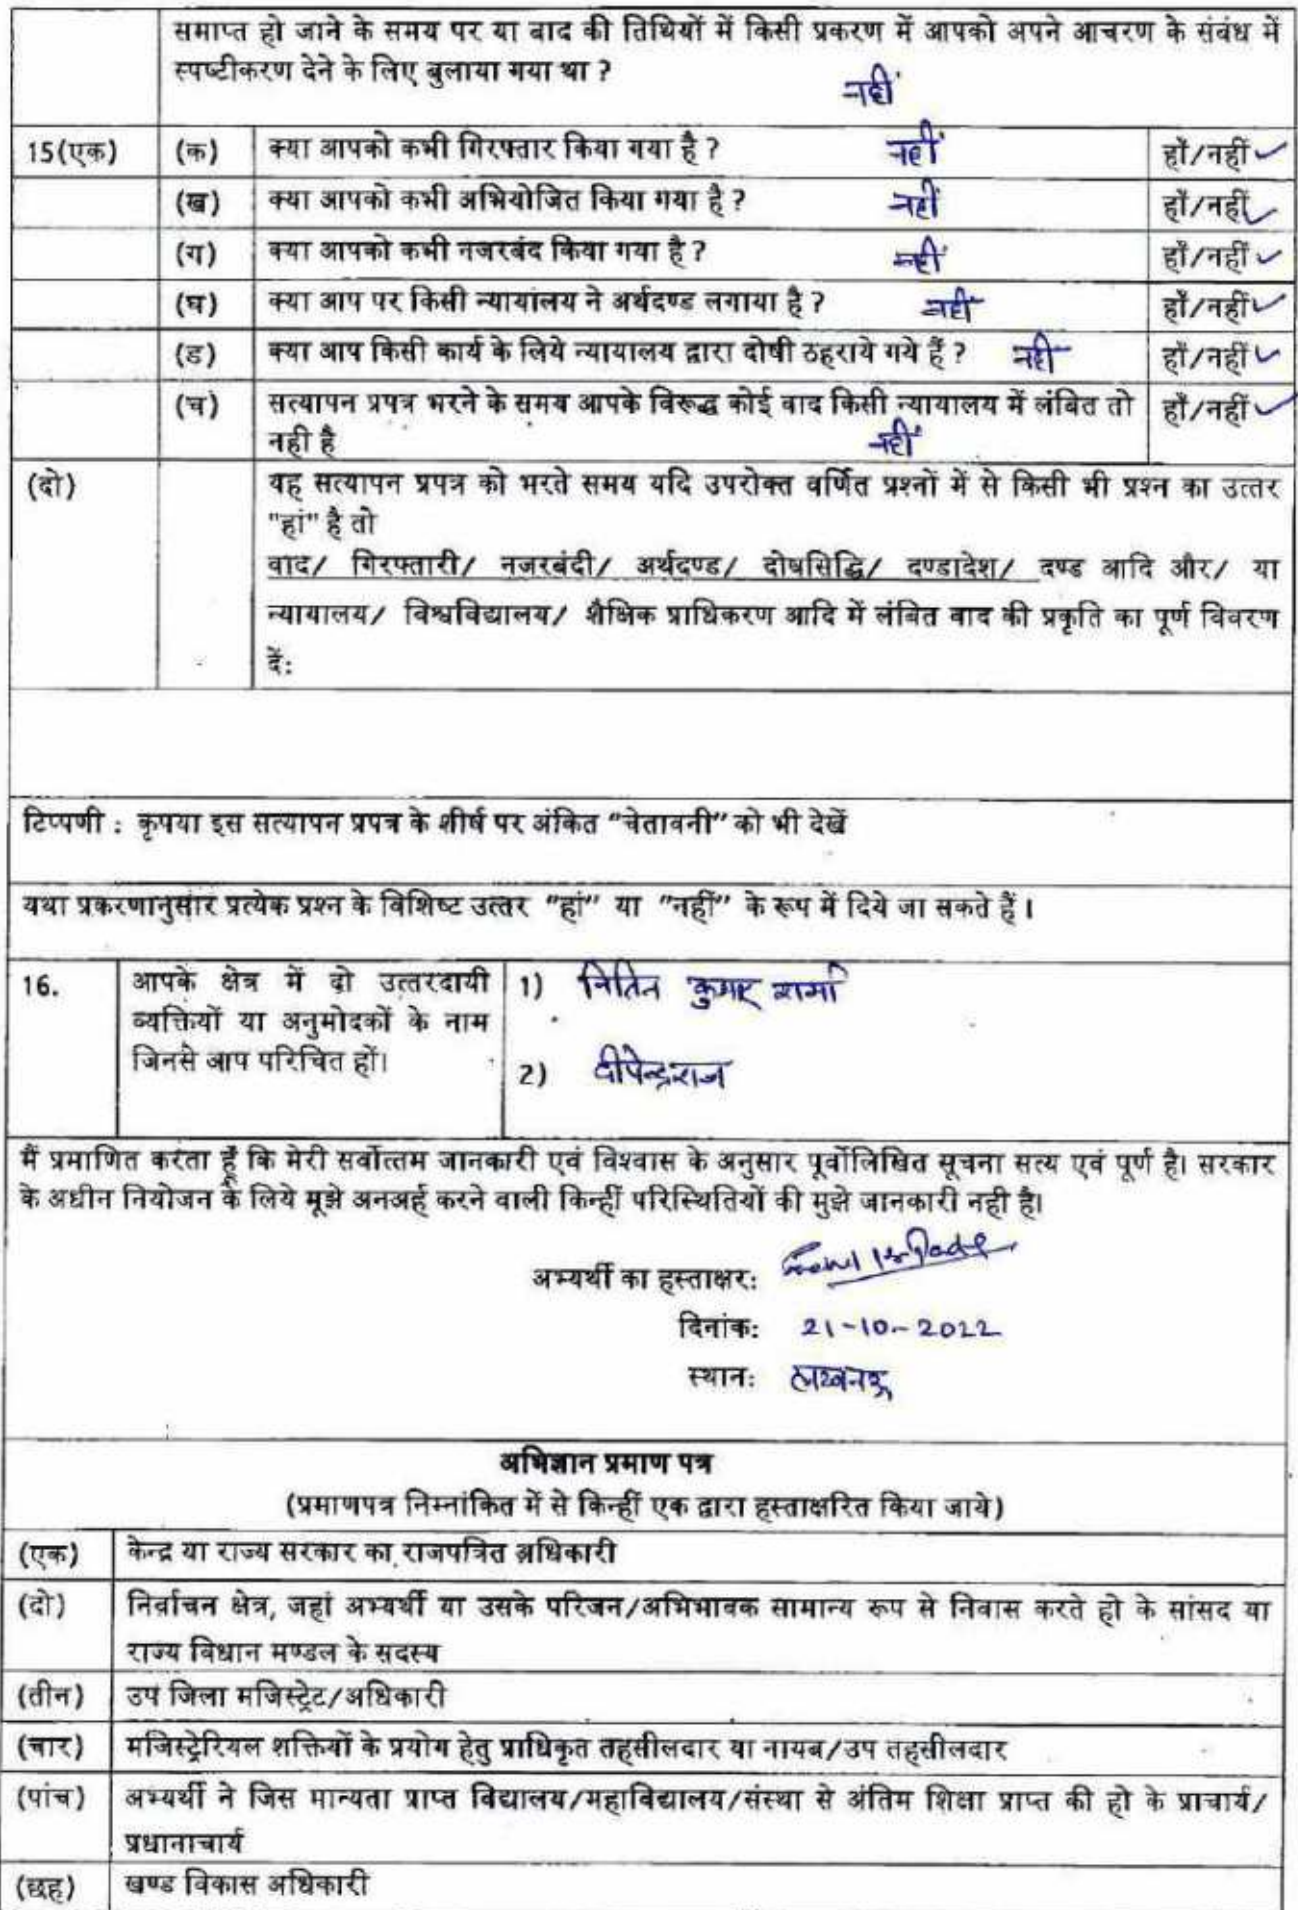 समाप्त हो जाने के समय पर या बाद की तिथियों में किसी प्रकरण में आपको अपने आचरण के संबंध में
स्पष्टीकरण देने के लिए बुलाया गया था ?
नहीं
15(एक) (क) क्या आपको कभी गिरफ्तार किया गया है ? नहीं हाँ/नहीं ✓
(ख) क्या आपको कभी अभियोजित किया गया है ? नहीं हाँ/नहीं ✓
(ग) क्या आपको कभी नजरबंद किया गया है ? नहीं हाँ/नहीं ✓
(घ) क्या आप पर किसी न्यायालय ने अर्थदण्ड लगाया है ? नहीं हाँ/नहीं ✓
(ड) क्या आप किसी कार्य के लिये न्यायालय द्वारा दोषी ठहराये गये हैं ? नहीं हाँ/नहीं ✓
(च) सत्यापन प्रपत्र भरने के समय आपके विरूद्ध कोई वाद किसी न्यायालय में लंबित तो हाँ/नहीं ✓
नही है नहीं
(दो) यह सत्यापन प्रपत्र को भरते समय यदि उपरोक्त वर्णित प्रश्नों में से किसी भी प्रश्न का उत्तर
"हां" है तो
वाद/ गिरफ्तारी/ नजरबंदी/ अर्थदण्ड/ दोषसिद्धि/ दण्डादेश/ दण्ड आदि और/ या
न्यायालय/ विश्वविद्यालय/ शैक्षिक प्राधिकरण आदि में लंबित वाद की प्रकृति का पूर्ण विवरण
दें:
टिप्पणी : कृपया इस सत्यापन प्रपत्र के शीर्ष पर अंकित "चेतावनी" को भी देखें
यथा प्रकरणानुसार प्रत्येक प्रश्न के विशिष्ट उत्तर "हां" या "नहीं" के रूप में दिये जा सकते हैं ।
16. आपके क्षेत्र में दो उत्तरदायी 1) नितिन कुमार शर्मा
व्यक्तियों या अनुमोदकों के नाम
जिनसे आप परिचित हों। 2) दीपेन्द्रराज
मैं प्रमाणित करता हूँ कि मेरी सर्वोत्तम जानकारी एवं विश्वास के अनुसार पूर्वोलिखित सूचना सत्य एवं पूर्ण है। सरकार
के अधीन नियोजन के लिये मूझे अनअर्ह करने वाली किन्हीं परिस्थितियों की मुझे जानकारी नही है।
अभ्यर्थी का हस्ताक्षर:
दिनांक: 21-10-2022
स्थान: लखनऊ
अभिज्ञान प्रमाण पत्र
(प्रमाणपत्र निम्नांकित में से किन्हीं एक द्वारा हस्ताक्षरित किया जाये)
(एक) केन्द्र या राज्य सरकार का राजपत्रित अधिकारी
(दो) निर्वाचन क्षेत्र, जहां अभ्यर्थी या उसके परिजन/अभिभावक सामान्य रूप से निवास करते हो के सांसद या
राज्य विधान मण्डल के सदस्य
(तीन) उप जिला मजिस्ट्रेट/अधिकारी
(चार) मजिस्ट्रेरियल शक्तियों के प्रयोग हेतु प्राधिकृत तहसीलदार या नायब/उप तहसीलदार
(पांच) अभ्यर्थी ने जिस मान्यता प्राप्त विद्यालय/महाविद्यालय/संस्था से अंतिम शिक्षा प्राप्त की हो के प्राचार्य/
प्रधानाचार्य
(छह) खण्ड विकास अधिकारी